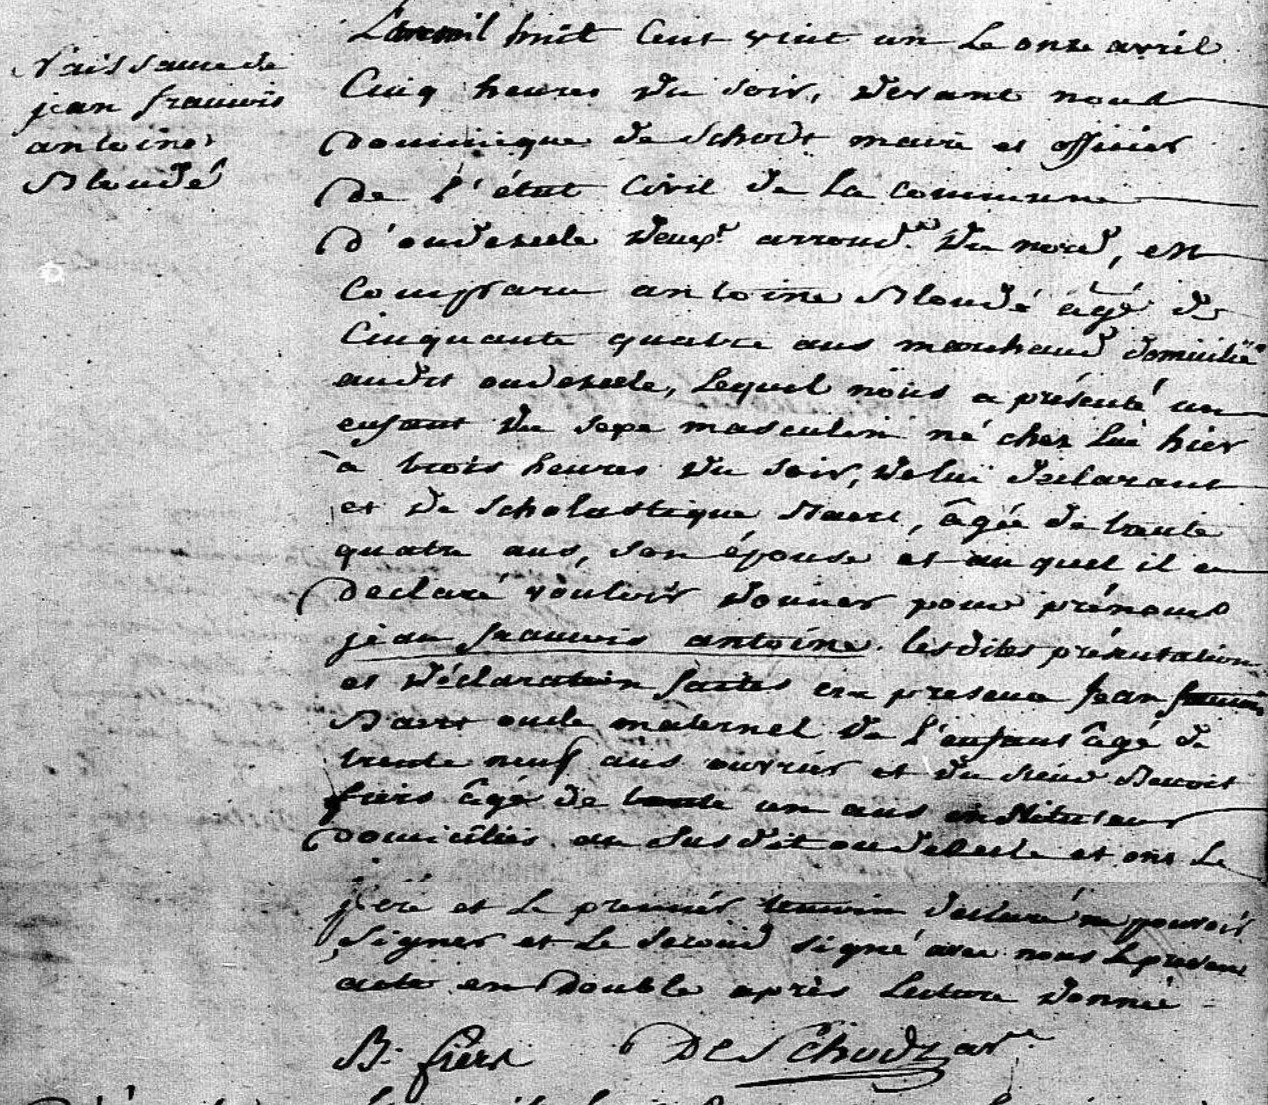 Naissance de
jean francois
antoine
Bloudé
L'an mil huit Cent vint un Le onze avril
Cinq heures du soir, devant nous
Dominique de Schodt maire et officier
De l'état Civil de La commune
D'oudezeele arrond.t du nord, est
Comparu antoine Bloudé âgé de
Cinquante quatre ans marchand domicilié
audit oudezeele, Lequel nous a présenté un
enfant du sexe masculin né chez Lui hier
à trois heures du soir, de lui déclarant
et de Scholastique Baert, âgée de trente
quatre ans, son épouse et au quel il a
Declaré vouloir donner pour prénoms
jean francois antoine. Lesdites présentation
et déclaration faites en presence jean francois
Baert oncle maternel de L'enfant âgé de
trente neuf ans ouvrier et du sieur Benoit
fiers âgé de trente un ans instituteur
Domiciliés au susdit oudezeele et ont Le
pére et Le premier temoin declaré ne pouvoir
signer et Le second signé avec nous Le present
acte en Double après Lecture donnée
B. fiers DeSchodt